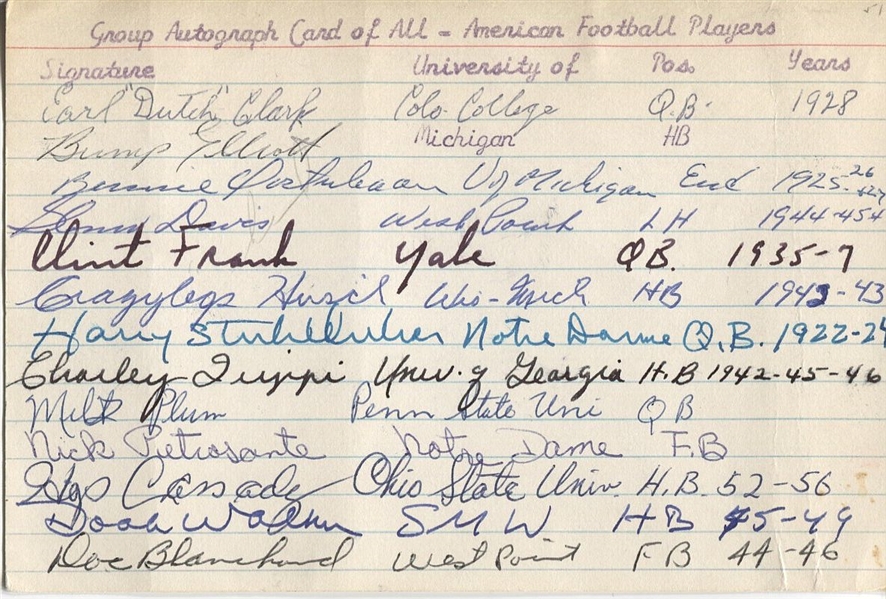 51
Group Autograph Card of All - American Football Players
Signature University of Pos. Years
Earl "Dutch" Clark Colo. College Q.B. 1928
Bump Elliott Michigan HB
Bennie Oosterbaan U of Michigan End 1925-26+27
Glenn Davis West Point LH 1944-45+
Clint Frank Yale QB. 1935-7
Crazylegs Hirsch Wis-Mich HB 1942-43
Harry Stuhldreher Notre Dame Q.B. 1922-24
Charley Trippi Univ. of Georgia H.B 1942-45-46
Milt Plum Penn State Uni QB
Nick Pietrosante Notre Dame F.B
Cassady Ohio State Univ. H.B. 52-56
Doak Walker SMU HB 45-49
Doc Blanchard West Point FB 44-46